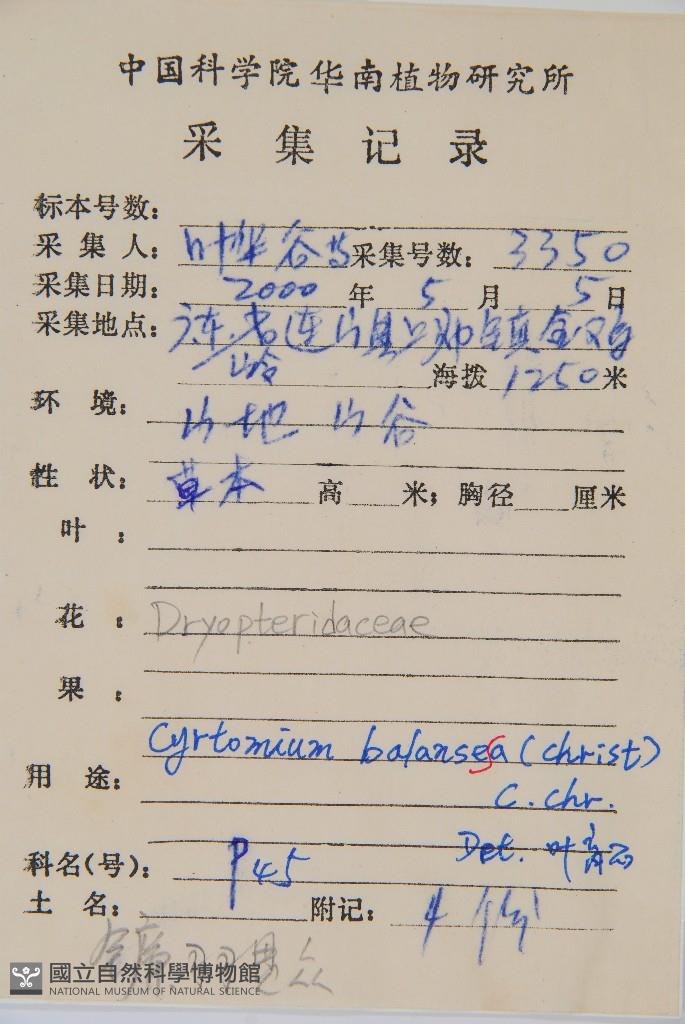 中国科学院华南植物研究所
采集记录
标本号数：
采集人： 叶华谷等 采集号数： 3350
采集日期： 2000 年 5 月 5 日
采集地点： 广东省连山县上帅镇金鸡
岭 海拨 1250 米
环 境： 山地 山谷
性 状： 草本 高 米；胸径 厘米
叶 ：
花 ： Dryopteridaceae
果 ：
Cyrtomium balansea (christ)
用 途： C. chr.
Det. 叶
科名(号)： P45
土 名： 附记： 4份
國立自然科學博物館
NATIONAL MUSEUM OF NATURAL SCIENCE